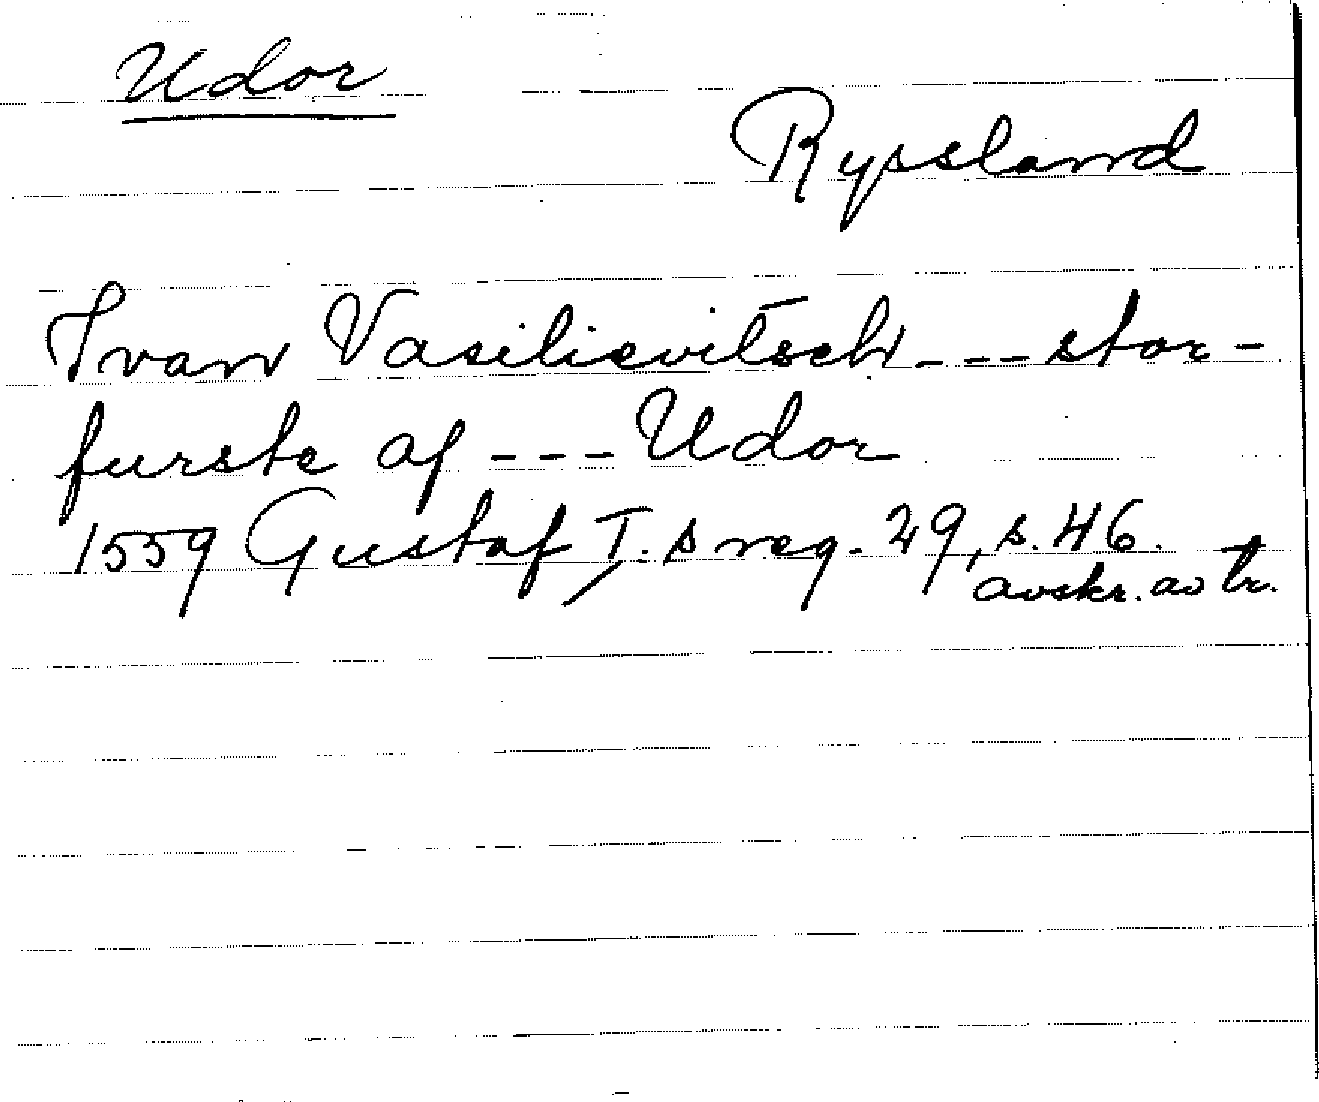 Udor
Ryssland
Ivan Vasilievitsch --- stor-
furste af --- Udor
1559 Gustaf I.s reg. 29, s. 46.
avskr. av tr.